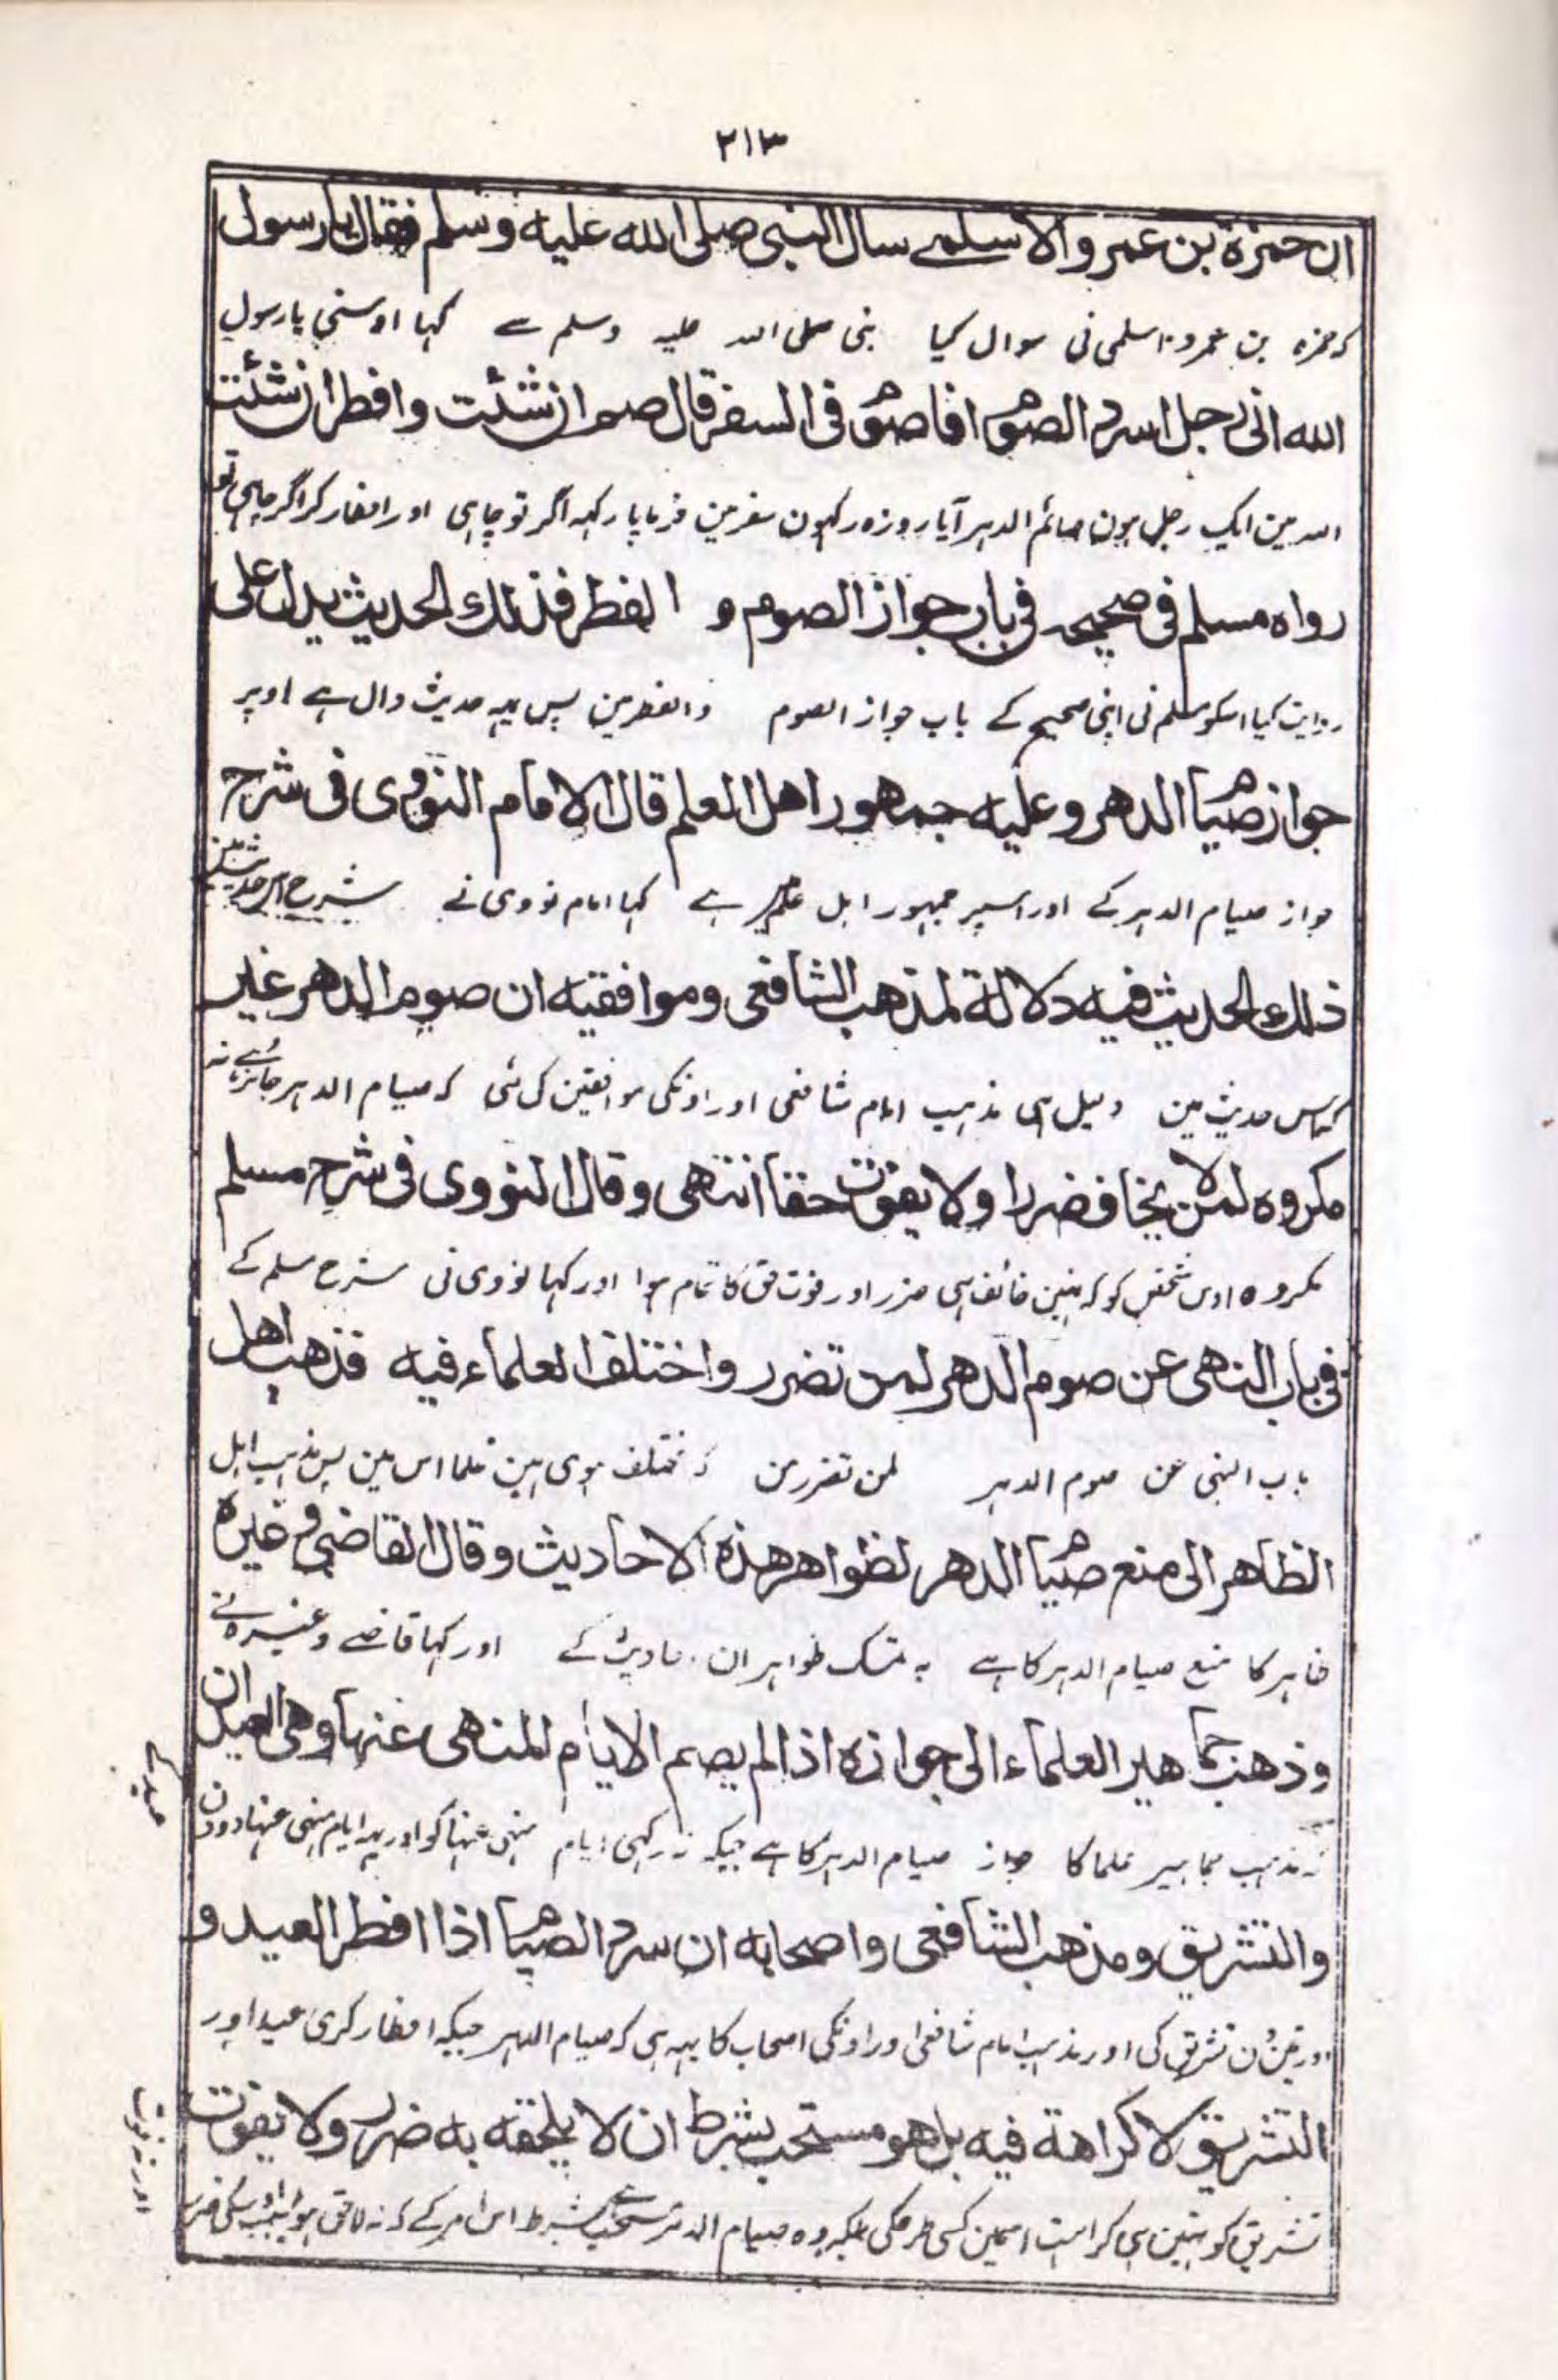 ۲۱۳
ان حمزة بن عمرو الاسلمے سال النبی صلی الله علیه وسلم فقال یا رسول
کہ حمزہ بن عمرو اسلمی نی سوال کیا نبی صلی اللہ علیہ وسلم سے کہا اوسنی یا رسول
الله انی رجل اسرد الصوم افاصوم فی السفر قال صم ان شئت وافطر ان شئت
اللہ مین ایک رجل ہون صائم الدہر آیا روزہ رکہون سفر مین فرمایا رکہہ اگر تو چاہی اور افطار کر اگر چاہی تو
رواه مسلم فی صحیحه فی باب جواز الصوم و الفطر فذلك الحدیث یدل علی
روایت کیا اسکو مسلم نی اپنی صحیح کے باب جواز الصوم والفطر مین پس یہہ حدیث دال ہے اوپر
جواز صیام الدهر وعلیه جمهور اهل العلم قال الامام النووی فی شرح
جواز صیام الدہر کے اور اسپر جمہور اہل علم ہے کہا امام نووی نے شرح اس حدیث مین
ذلك الحدیث فیه دلالة لمذهب الشافعی وموافقیه ان صوم الدهر غیر
کہ اس حدیث مین دلیل ہی مذہب امام شافعی اور اونکی موافقین کی لئی کہ صیام الدہر جائز ہے نہ
مکروه لمن لا یخاف ضررا ولا یفوت حقا انتهی وقال النووی فی شرح مسلم
مکروہ اوس شخص کو کہ نہین خائف ہی ضرر اور فوت حق کا تمام ہوا اور کہا نووی نی شرح مسلم کے
فی باب النهی عن صوم الدهر لمن تضرر واختلف العلماء فیه فذهب اهل
باب النہی عن صوم الدہر لمن تضرر مین کہ مختلف ہوی ہین علما اس مین پس مذہب اہل
الظاهر الی منع صیام الدهر لظواهر هذه الاحادیث وقال القاضی و غیره
ظاہر کا منع صیام الدہر کا ہے بہ تمسک ظواہر ان احادیث کے اور کہا قاضے وغیرہ نے
وذهب جماهیر العلماء الی جوازه اذا لم یصم الایام المنهی عنها وهی العیدان
کہ مذہب جماہیر علما کا جواز صیام الدہر کا ہے جبکہ نہ رکہی ایام منہی عنہا کو اور یہہ ایام منہی عنہا دونون
عید کے
والتشریق ومذهب الشافعی واصحابه ان سرد الصیام اذا افطر العید و
اور تین دن تشریق کی اور مذہب امام شافعی اور اونکی اصحاب کا یہہ ہی کہ صیام الدہر جبکہ افطار کری عید اور
التشریق لا کراهة فیه بل هو مستحب بشرط ان لا یلحقه به ضرر ولا یفوت
تشریق کو نہین ہی کراہت اسمین کسی طرحکی بلکہ وہ صیام الدہر مستحب ہے بشرط اس امر کے کہ نہ لاحق ہو بسبب اسکی ضرر
اور نہ فوت